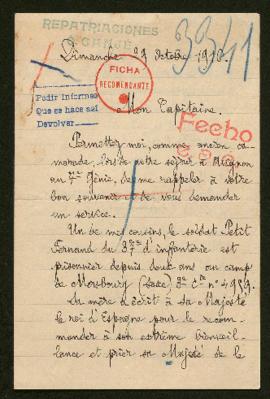 REPATRIACIONES
CANGE
3341
Dimanche 27 Octobre 1918.
FICHA
RECOMENDANTE
Pedir informes
Que se hace así
Devolver
Mon Capitaine.
Fecho
Permettez moi, comme ancien ca-
marade, lors de votre séjour à Avignon
au 7me Génie, de me rappeler à votre
bon souvenir et de vous demander
un service.
Un de mes cousins, le soldat Petit
Fernand du 37me d'infanterie est
prisonnier depuis deux ans au camp
de Mersbourg (Saxe) 3e Cie n° 4959.
Sa mère a écrit à sa Majesté
le roi d'Espagne pour le recom-
mander à son extrême bienveil-
lance et prier sa Majesté de le